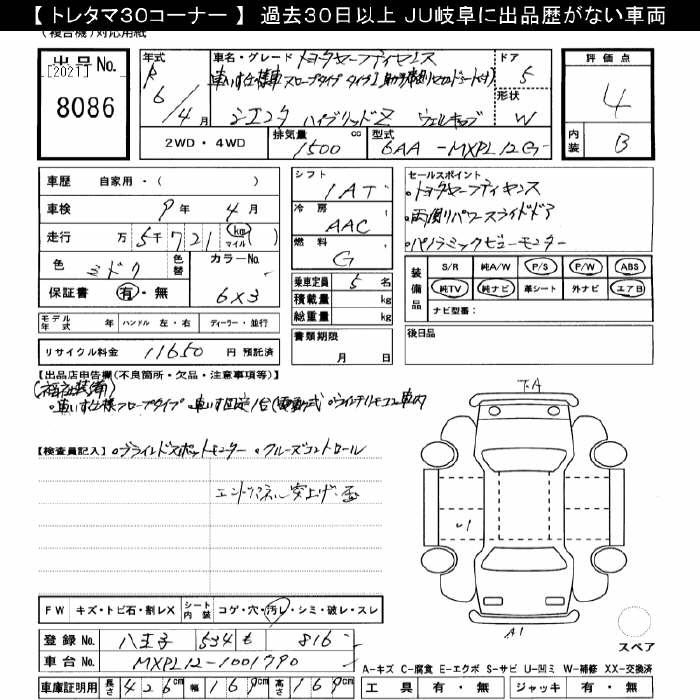 【 トレタマ30コーナー 】 過去30日以上 JU岐阜に出品歴がない車両
(複合機)対応用紙
出品No.
[2021]
8086
年式
R
6/4月
車名・グレード トヨタセーフティセンス
車いす仕様車スロープタイプ タイプI
シエンタ ハイブリッドZ ウェルキャブ
ドア
5
形状
W
評価点
4
内装
B
2WD・4WD
排気量
1500 cc
型式
6AA-MXPL12G
車歴 自家用・( )
車検 9年 4月
走行 万 5千 7 2 1 (km マイル)( )
色 ミドリ
色替
カラーNo.
6X3
保証書 有・無
シフト
1AT
冷房
AAC
燃料
G
セールスポイント
・トヨタセーフティセンス
・両側パワースライドドア
・パノラミックビューモニター
装備品
S/R 純A/W P/S P/W ABS
純TV 純ナビ 革シート 外ナビ エアB
ナビ型番:
乗車定員 5 名
積載量 kg
総重量 kg
モデル年式 年 ハンドル 左・右 ディーラー・並行
リサイクル料金 11650 円 預託済
書類期限
月 日
後日品
【出品店申告欄(不良箇所・欠品・注意事項等)】
(福祉装備)
・車いす仕様スロープタイプ ・車いす固定1台(電動式) ・ウインチリモコン車内
下A
【検査員記入】 ・ブラインドスポットモニター ・クルーズコントロール
エンドパネル突上げ・歪
U1
A1
スペア
FW キズ・トビ石・割レX
シート内装 コゲ・穴・汚レ・シミ・破レ・スレ
登録No. 八王子 534 も 816
車台No. MXPL12-1001790
車庫証明用 長さ 426cm 幅 169cm 高さ 169cm
A-キズ C-腐食 E-エクボ S-サビ U-凹ミ W-補修 XX-交換済
工具 有・無 ジャッキ 有・無